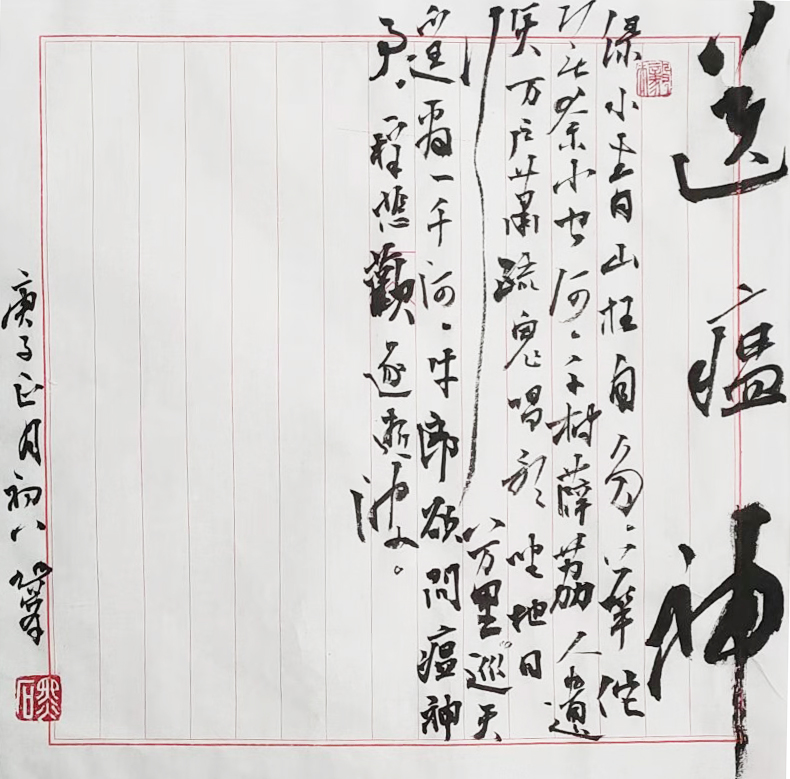 送瘟神
绿水青山枉自多、华佗
无奈小虫何、千村薜荔人遗
矢万户萧疏鬼唱歌坐地日
行八万里巡天
遥看一千河、牛郎欲問瘟神
事。一样悲歡逐逝波。
庚子正月初八